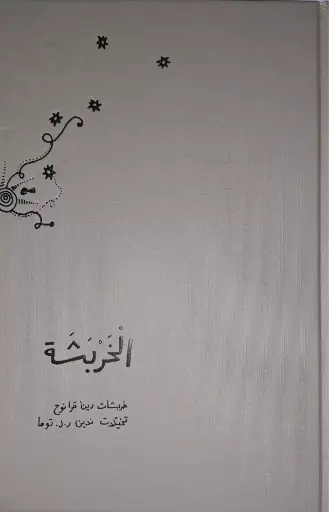 الْخَرْبَشَة
خربشات دينا قرانوح
تخيّلات ندين ر.ل. توما